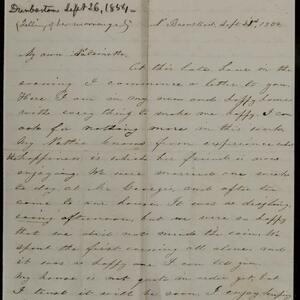 Dunbarton Sept 26, 1854
(Telling of her marriage)
N. Branford, Sept 28th, 1854
My own
At this late hour on the
evening I commence a letter to you.
Here I am in my new and happy home
with every thing to make me happy. I can
ask for nothing more in this world
My Nettie knows from experience what
happiness is which her friend is now
enjoying. We were married one week
to day, at Mr George's, and after tea
came to our house. It was a drizzling
rainy afternoon, but we were so happy
that we did not mind the rain. We
spent the first evening all alone and it
was a happy one I can tell you.
My house is not quite in order yet, but
I trust it will be soon I enjoy keeping